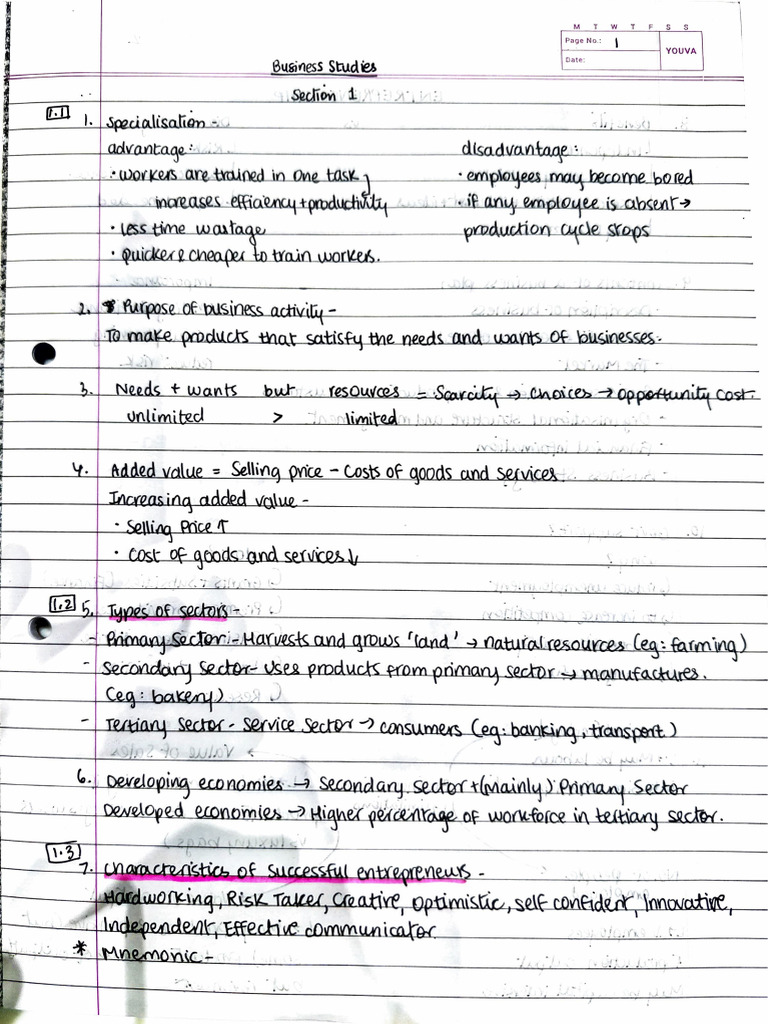 M T W T F S S
Page No.: 1
YOUVA
Date:
Business Studies
Section 1
1.1
1. Specialisation -
advantage: disadvantage:
· workers are trained in one task, · employees may become bored
increases efficiency + productivity · if any employee is absent →
· less time wastage production cycle stops
· quicker & cheaper to train workers.
2. Purpose of business activity -
To make products that satisfy the needs and wants of businesses.
3. Needs + wants but resources = Scarcity → choices → opportunity cost.
unlimited > limited
4. Added value = Selling price - Costs of goods and services
Increasing added value -
· Selling Price ↑
· Cost of goods and services ↓
1.2 5. Types of sectors -
- Primary Sector: - Harvests and grows 'land' → natural resources (eg: farming)
- Secondary Sector - Uses products from primary sector → manufactures.
(eg: bakery)
- Tertiary Sector - Service Sector → consumers (eg: banking, transport)
6. Developing economies → Secondary Sector + (Mainly) Primary Sector
Developed economies → Higher percentage of workforce in tertiary sector.
1.3
7. Characteristics of Successful entrepreneurs -
Hardworking, Risk Taker, Creative, Optimistic, Self confident, Innovative,
Independent, Effective communicator
* Mnemonic -